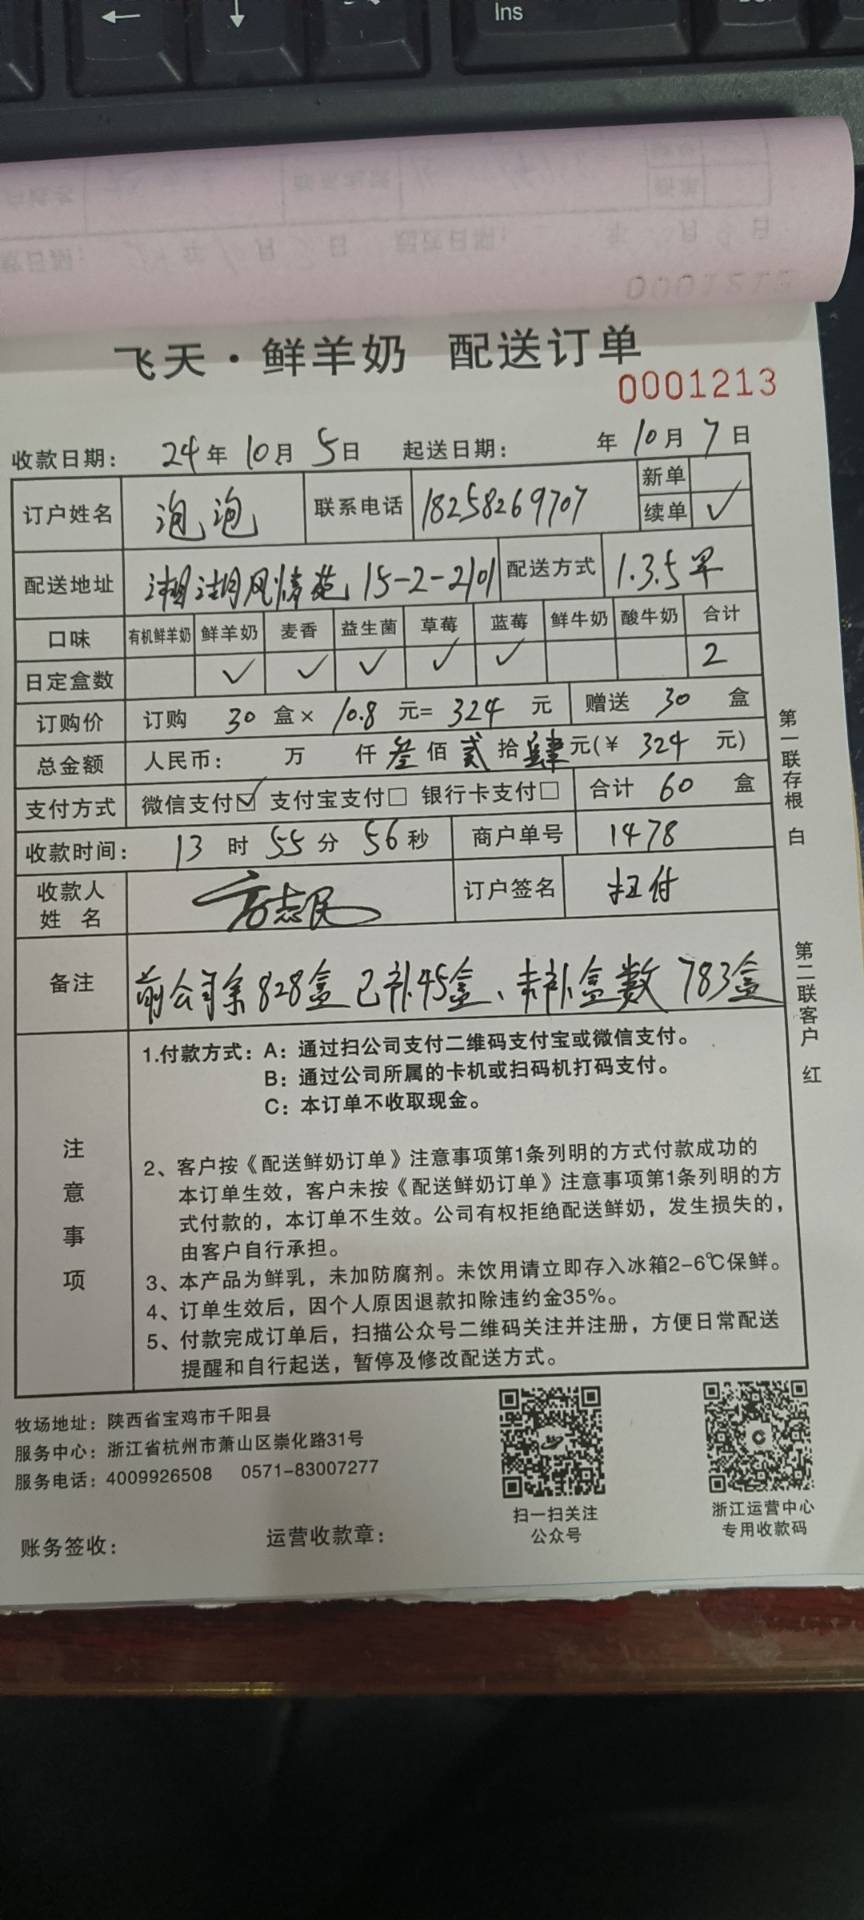 Ins
0001212
飞天·鲜羊奶 配送订单
0001213
收款日期： 24年 10月 5日 起送日期： 年 10月 7日
订户姓名 泡泡 联系电话 18258269707 新单
续单 ✓
配送地址 湘湖风情苑 15-2-2101 配送方式 1.3.5早
口味 有机鲜羊奶 鲜羊奶 麦香 益生菌 草莓 蓝莓 鲜牛奶 酸牛奶 合计
日定盒数 ✓ ✓ ✓ ✓ ✓ 2
订购价 订购 30 盒× 10.8 元= 324 元 赠送 30 盒
总金额 人民币： 万 仟 叁 佰 贰 拾 肆 元(￥ 324 元)
支付方式 微信支付☑ 支付宝支付□ 银行卡支付□ 合计 60 盒
收款时间： 13 时 55 分 56 秒 商户单号 1478
收款人姓名 方志民 订户签名 扫付
备注 前公司余828盒已补45盒、未补盒数783盒
注意事项
1.付款方式：A：通过扫公司支付二维码支付宝或微信支付。
B：通过公司所属的卡机或扫码机打码支付。
C：本订单不收取现金。
2、客户按《配送鲜奶订单》注意事项第1条列明的方式付款成功的
本订单生效，客户未按《配送鲜奶订单》注意事项第1条列明的方
式付款的，本订单不生效。公司有权拒绝配送鲜奶，发生损失的，
由客户自行承担。
3、本产品为鲜乳，未加防腐剂。未饮用请立即存入冰箱2-6℃保鲜。
4、订单生效后，因个人原因退款扣除违约金35%。
5、付款完成订单后，扫描公众号二维码关注并注册，方便日常配送
提醒和自行起送，暂停及修改配送方式。
第一联存根 白
第二联客户 红
牧场地址：陕西省宝鸡市千阳县
服务中心：浙江省杭州市萧山区崇化路31号
服务电话：4009926508 0571-83007277
扫一扫关注
公众号
浙江运营中心
专用收款码
账务签收： 运营收款章：